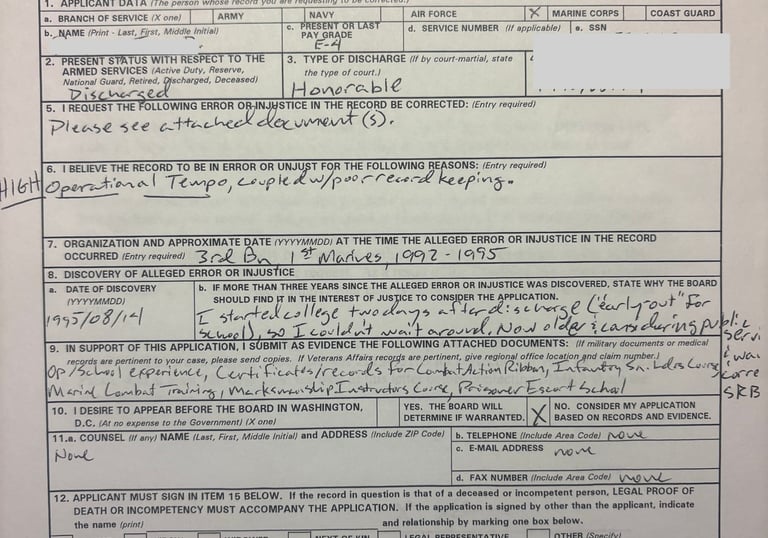 1. APPLICANT DATA (The person whose record you are requesting to be corrected.)
a. BRANCH OF SERVICE (X one) ARMY NAVY AIR FORCE X MARINE CORPS COAST GUARD
b. NAME (Print - Last, First, Middle Initial) c. PRESENT OR LAST PAY GRADE d. SERVICE NUMBER (If applicable) e. SSN
E-4
2. PRESENT STATUS WITH RESPECT TO THE ARMED SERVICES (Active Duty, Reserve, National Guard, Retired, Discharged, Deceased)
Discharged
3. TYPE OF DISCHARGE (If by court-martial, state the type of court.)
Honorable
5. I REQUEST THE FOLLOWING ERROR OR INJUSTICE IN THE RECORD BE CORRECTED: (Entry required)
Please see attached document(s).
6. I BELIEVE THE RECORD TO BE IN ERROR OR UNJUST FOR THE FOLLOWING REASONS: (Entry required)
HIGH Operational Tempo, coupled w/poor record keeping.
7. ORGANIZATION AND APPROXIMATE DATE (YYYYMMDD) AT THE TIME THE ALLEGED ERROR OR INJUSTICE IN THE RECORD
OCCURRED (Entry required) 3rd Bn, 1st Marines, 1992-1995
8. DISCOVERY OF ALLEGED ERROR OR INJUSTICE
a. DATE OF DISCOVERY
(YYYYMMDD)
1995/08/14
b. IF MORE THAN THREE YEARS SINCE THE ALLEGED ERROR OR INJUSTICE WAS DISCOVERED, STATE WHY THE BOARD
SHOULD FIND IT IN THE INTEREST OF JUSTICE TO CONSIDER THE APPLICATION.
I started college two days after discharge ("early-out" for
school), so I couldn't wait around. Now older & considering public
9. IN SUPPORT OF THIS APPLICATION, I SUBMIT AS EVIDENCE THE FOLLOWING ATTACHED DOCUMENTS: (If military documents or medical
records are pertinent to your case, please send copies. If Veterans Affairs records are pertinent, give regional office location and claim number.)
Op/School experience, Certificates/records for Combat Action Ribbon, Infantry Sn. Ldrs Course,
Marine Combat Training, Marksmanship Instructors Course, Prisoner Escort School
SRB
10. I DESIRE TO APPEAR BEFORE THE BOARD IN WASHINGTON,
D.C. (At no expense to the Government) (X one)
YES. THE BOARD WILL
DETERMINE IF WARRANTED.
X NO. CONSIDER MY APPLICATION
BASED ON RECORDS AND EVIDENCE.
11.a. COUNSEL (If any) NAME (Last, First, Middle Initial) and ADDRESS (Include ZIP Code)
None
b. TELEPHONE (Include Area Code) none
c. E-MAIL ADDRESS none
d. FAX NUMBER (Include Area Code) none
12. APPLICANT MUST SIGN IN ITEM 15 BELOW. If the record in question is that of a deceased or incompetent person, LEGAL PROOF OF
DEATH OR INCOMPETENCY MUST ACCOMPANY THE APPLICATION. If the application is signed by other than the applicant, indicate
the name (print) and relationship by marking one box below.
NEXT OF KIN LEGAL REPRESENTATIVE OTHER (Specify)